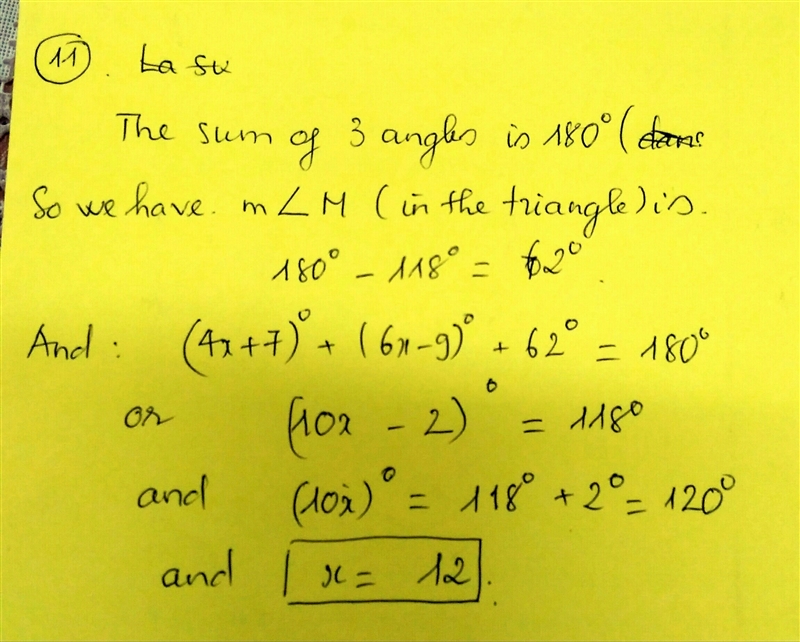 11. La su
The sum of 3 angles is 180° (dans
So we have. m∠M (in the triangle) is.
180° - 118° = 62°.
And : (4x+7)° + (6x-9)° + 62° = 180°
or (10x - 2)° = 118°
and (10x)° = 118° + 2° = 120°
and x = 12.